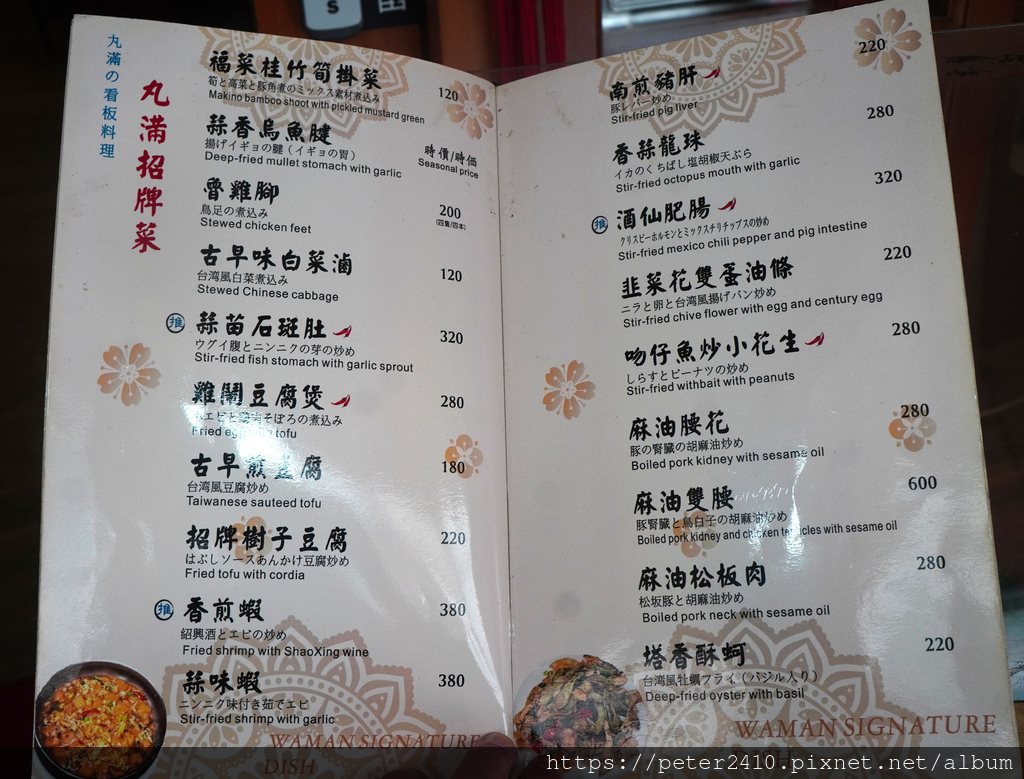 丸滿の看板料理
丸滿招牌菜
福菜桂竹筍掛菜 120
筍と高菜と豚角煮のミックス素材煮込み
Makino bamboo shoot with pickled mustard green
蒜香烏魚腱 時價/時価
揚げイギョの腱(イギョの胃) Seasonal price
Deep-fried mullet stomach with garlic
魯雞腳 200
鳥足の煮込み (四隻/四本)
Stewed chicken feet
古早味白菜滷 120
台湾風白菜煮込み
Stewed Chinese cabbage
推 蒜苗石斑肚 320
ウグイ腹とニンニクの芽の炒め
Stir-fried fish stomach with garlic sprout
雞鬧豆腐煲 280
そぼろの煮込み
Fried tofu
古早煎豆腐 180
台湾風豆腐炒め
Taiwanese sauteed tofu
招牌樹子豆腐 220
はぶしソースあんかけ豆腐炒め
Fried tofu with cordia
推 香煎蝦 380
紹興酒とエビの炒め
Fried shrimp with ShaoXing wine
蒜味蝦 380
ニンニク味付き茹でエビ
Stir-fried shrimp with garlic
WAMAN SIGNATURE
DISH
南煎豬肝 220
豚レバー炒め
Stir-fried pig liver
香蒜龍珠 280
イカのくちばし塩胡椒天ぷら
Stir-fried octopus mouth with garlic
推 酒仙肥腸 320
クリスピーホルモンとミックスチリチップスの炒め
Stir-fried mexico chili pepper and pig intestine
韭菜花雙蛋油條 220
ニラと卵と台湾風揚げパン炒め
Stir-fried chive flower with egg and century egg
吻仔魚炒小花生 280
しらすとピーナツの炒め
Stir-fried withbait with peanuts
麻油腰花 280
豚の腎臓の胡麻油炒め
Boiled pork kidney with sesame oil
麻油雙腰 600
豚腎臓と鳥白子の胡麻油炒め
Boiled pork kidney and chicken testicles with sesame oil
麻油松板肉 280
松坂豚と胡麻油炒め
Boiled pork neck with sesame oil
塔香酥蚵 220
台湾風牡蠣フライ(バジル入り)
Deep-fried oyster with basil
WAMAN SIGNATURE
DISH
https://peter2410.pixnet.net/album